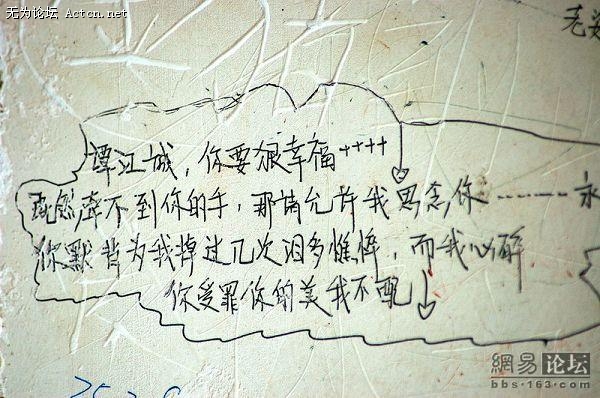 无为论坛 Actcn.net
老婆
谭江城，你要狠幸福++++
既然牵不到你的手，那请允许我思念你………永
你默皆为我掉过几次泪多憔悴，而我心碎
你受罪你的美我不配
網易 论坛
bbs.163.com